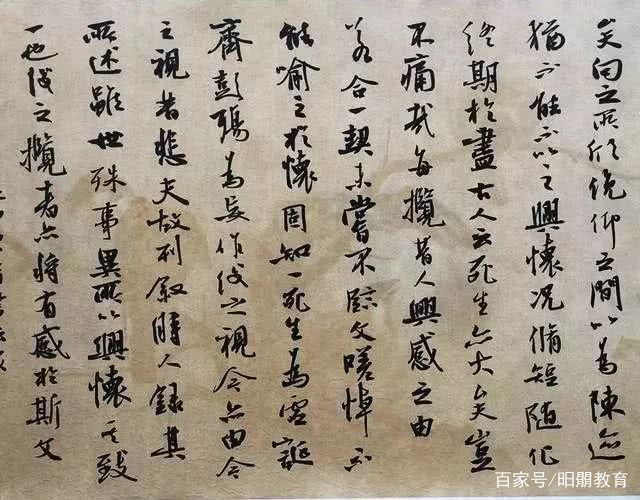 矣向之所欣俛仰之間以為陳迹
猶不能不以之興懷况脩短随化
終期於盡古人云死生亦大矣豈
不痛哉每攬昔人興感之由
若合一契未嘗不臨文嗟悼不
能喻之於懷固知一死生為虛誕
齊彭殤為妄作後之視今亦由今
之視昔悲夫故列叙時人錄其
所述雖世殊事異所以興懷其致
一也後之攬者亦將有感於斯文
百家号/昍朤教育